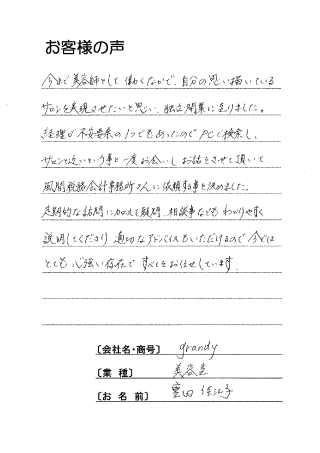 お客様の声
今まで美容師として働くなかで、自分の思い描いている
サロンを表現させたいと思い、独立開業に至りました。
経理が不安要素の1つでもあったのでPCで検索し、
サロンと近いという事と一度お会いしお話をさせて頂いて
風間税務会計事務所さんに依頼する事を決めました。
定期的な訪問に加えて顧問、相談事などもわかりやすく
説明してくださり適切なアドバイスもいただけるので今では
とても心強い存在ですべてをお任せしています。
〔会社名・商号〕 grandy
〔業 種〕 美容室
〔お 名 前〕 室田 佳江子